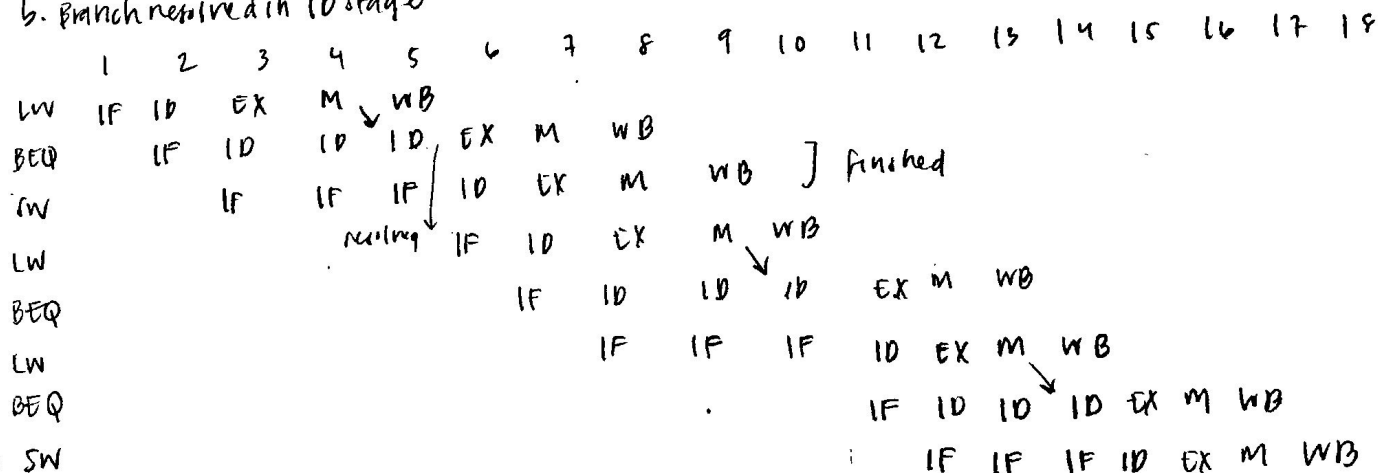 b. Branch resolved in ID stage
1 2 3 4 5 6 7 8 9 10 11 12 13 14 15 16 17 18
LW IF ID EX M WB
BEQ IF ID ID ID EX M WB
SW IF IF IF ID EX M WB ] finished
LW IF ID EX M WB
BEQ IF ID ID ID EX M WB
LW IF IF IF ID EX M WB
BEQ IF ID ID ID EX M WB
SW IF IF IF ID EX M WB